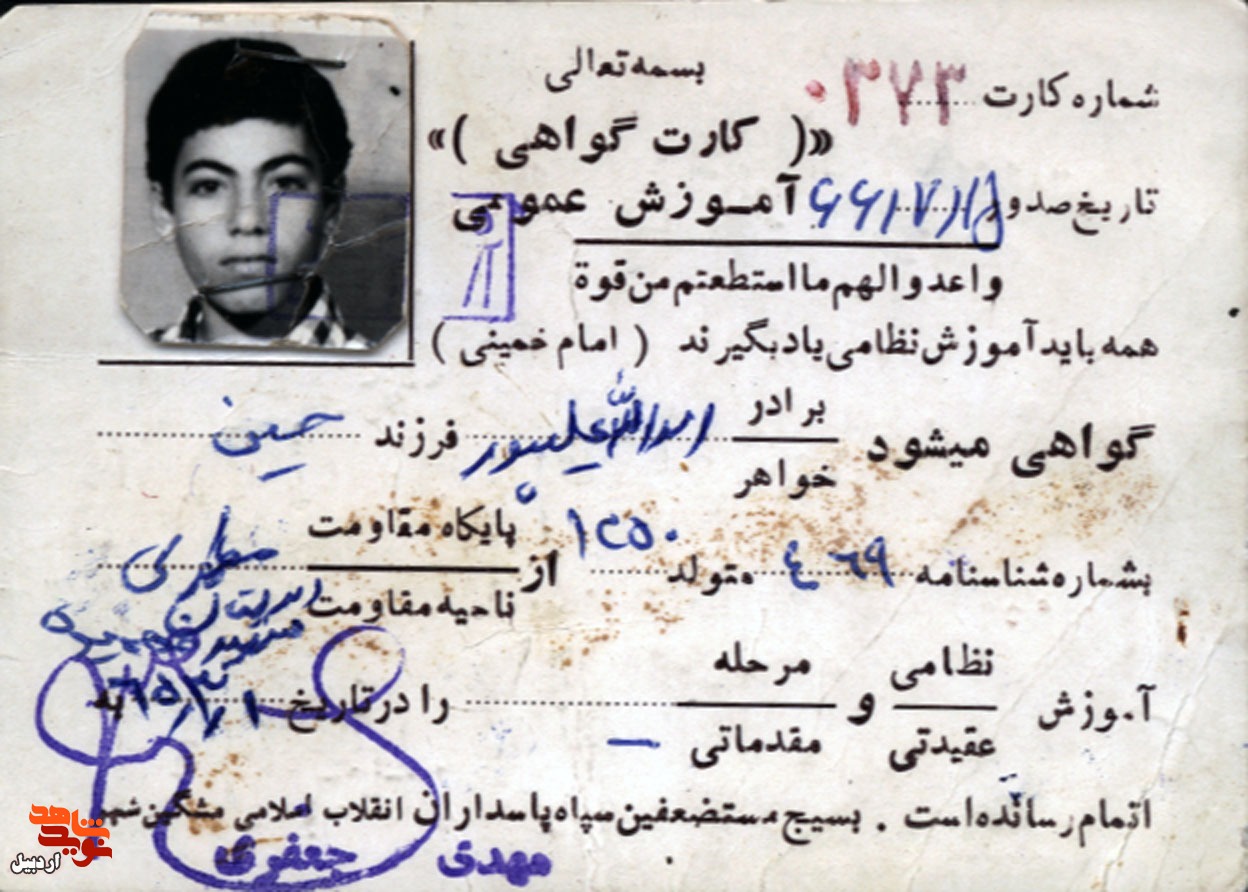 بسمه تعالی
شماره کارت ۰۳۷۳
«( کارت گواهی )»
تاریخ صدور
آموزش عمومی
واعدوا لهم ما استطعتم من قوة
همه باید آموزش نظامی یاد بگیرند ( امام خمینی )
گواهی میشود برادر خواهر اسدالله علیپور فرزند حسین
بشماره شناسنامه ٤٦٩ متولد ۱۳۵۰ از پایگاه مقاومت ناحیه مقاومت مطهری
آموزش نظامی عقیدتی و مرحله مقدماتی – را در تاریخ به
اتمام رسانده است . بسیج مستضعفین سپاه پاسداران انقلاب اسلامی مشگین شهر
مهدی جعفری
نوید شاهد
اردبیل